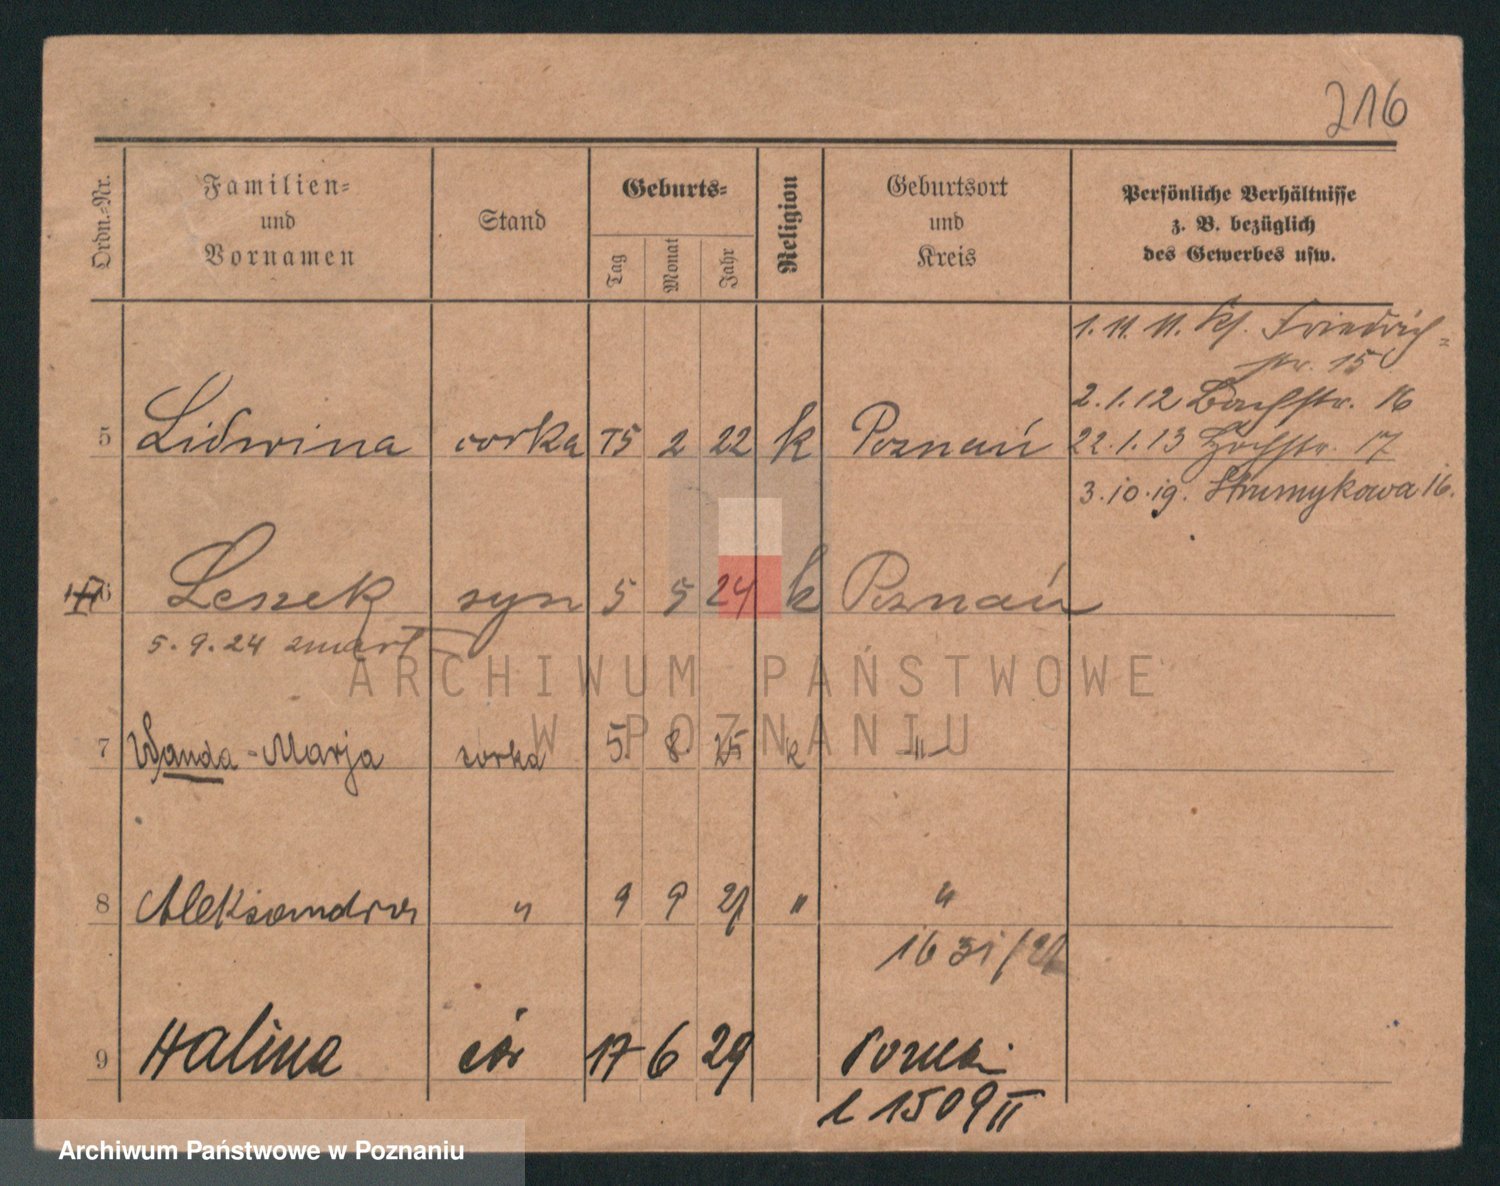 216
Ordn.-Nr.
Familien-
und
Vornamen
Stand
Geburts-
Tag
Monat
Jahr
Religion
Geburtsort
und
Kreis
Persönliche Verhältnisse
z. B. bezüglich
des Gewerbes usw.
1. 11. 11. Kl. Friedrich-
str. 15
2. 1. 12 Bachstr. 16
5 Lidwina corka 15 2 22 k Poznań 22. 1. 13 Hochstr. 17
3. 10. 19. Strumykowa 16.
6 Leszek syn 5 5 24 k Poznań
5. 9. 24 zmarł
7 Wanda - Marja corka 5. 8. 25 k "
8 Aleksandra " 9 9 27 " "
16 31/27
9 Halina cór 17 6 29 Poznań
L 1509 II
ARCHIWUM PAŃSTWOWE
W POZNANIU
Archiwum Państwowe w Poznaniu